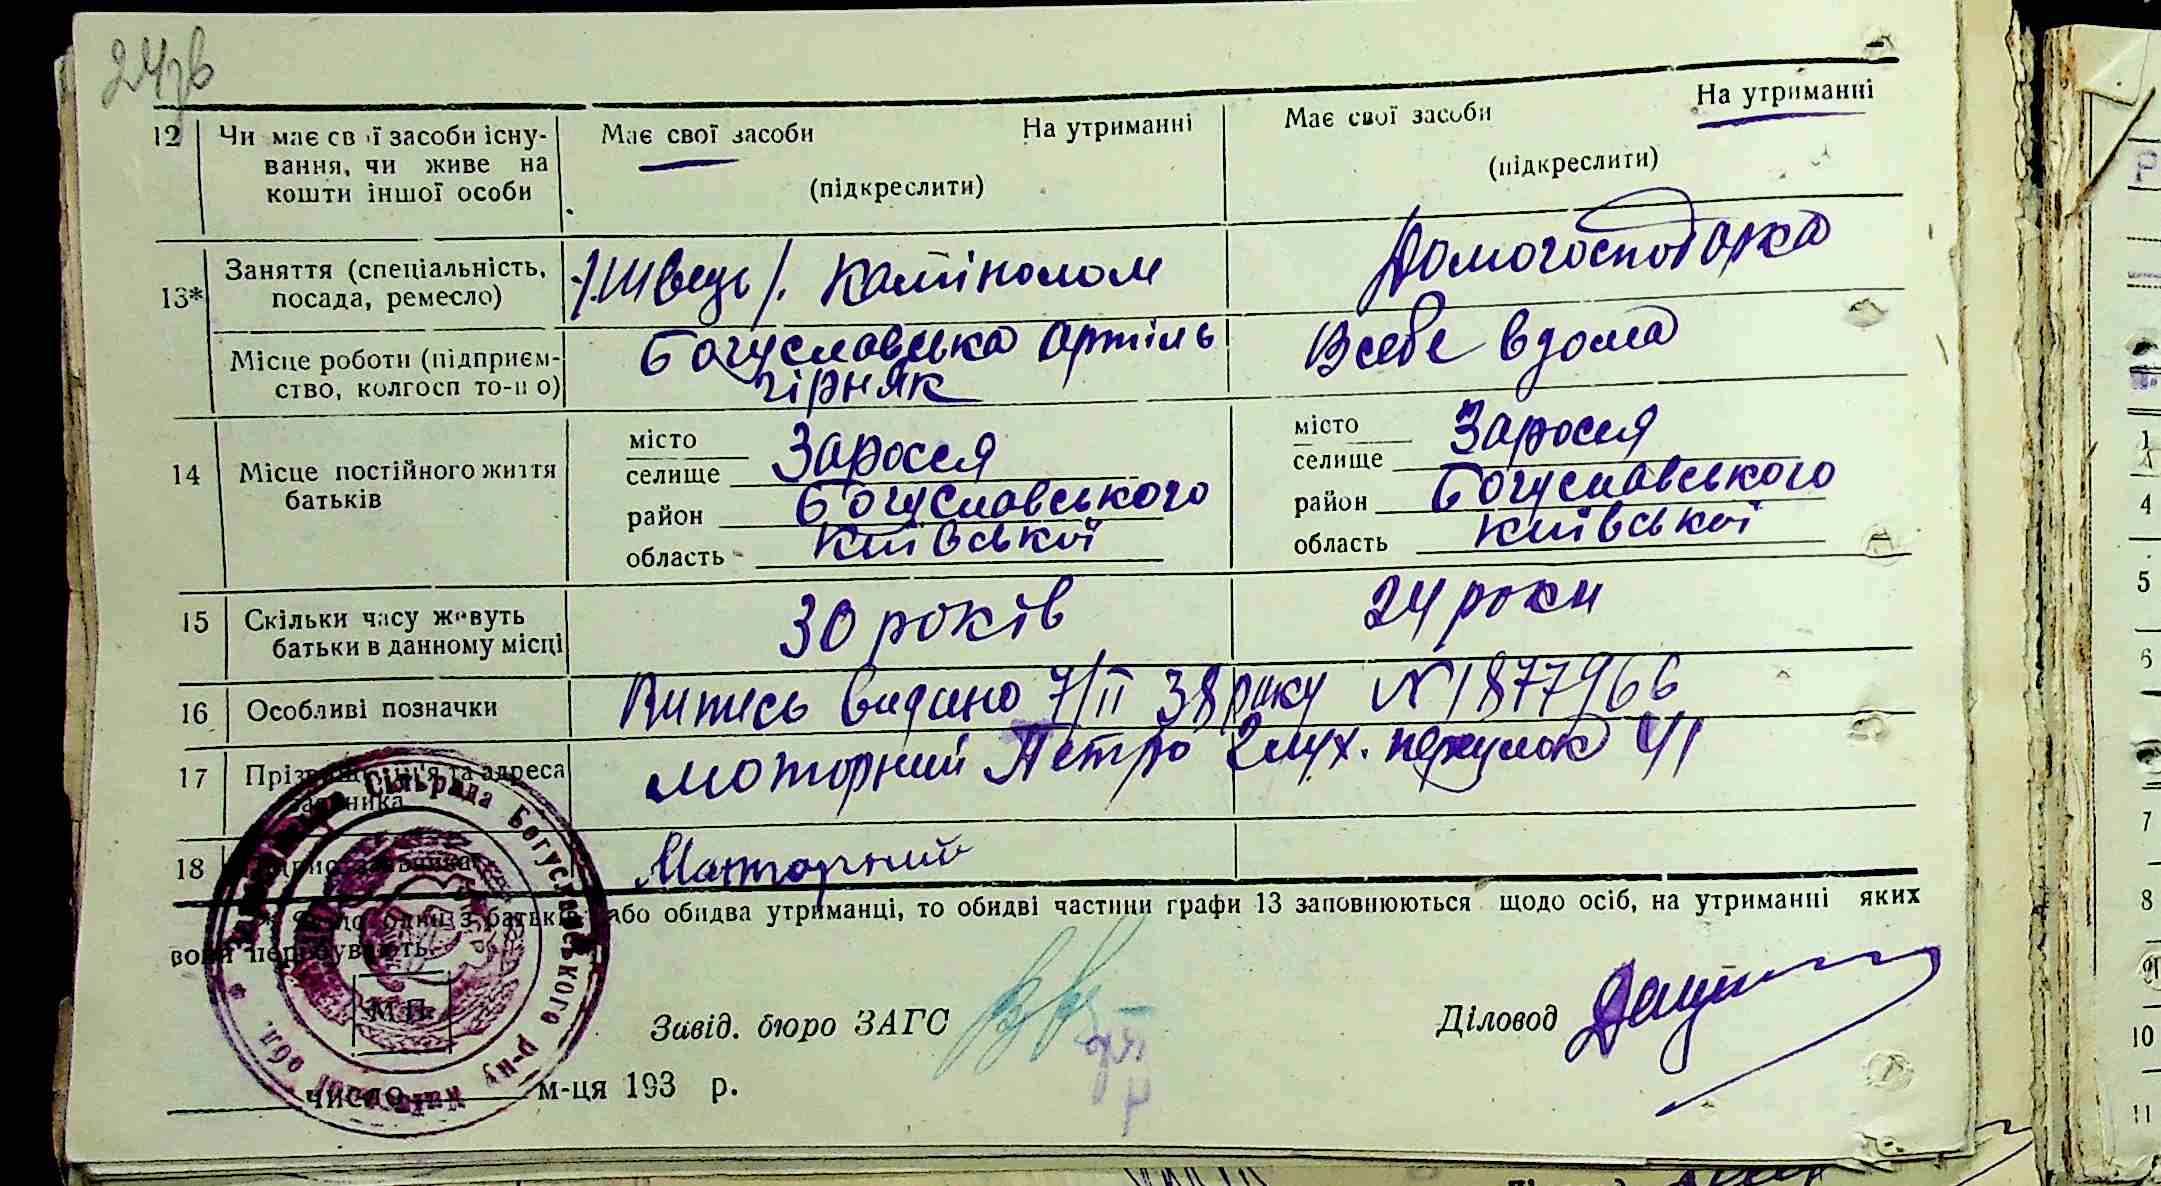 24зв
12 Чи має свої засоби існу- Має свої засоби На утриманні Має свої засоби На утриманні
вання, чи живе на (підкреслити) (підкреслити)
кошти іншої особи
13* Заняття (спеціальність, /.Швець/. Камінолом Домогосподарка
посада, ремесло)
Місце роботи (підприєм- Богуславська артіль В себе вдома
ство, колгосп то-що) гірняк
14 Місце постійного життя місто Заросся місто Заросся
батьків селище селище
район Богуславського район Богуславського
область Київської область Київської
15 Скільки часу живуть 30 років 24 роки
батьки в данному місці
16 Особливі позначки Випись видано 7/II 38 року № 1877966
17 Прізвище, ім'я та адреса Моторний Петро
заявника
18 Моторний
* Якщо один з батьків або обидва утриманці, то обидві частини графи 13 заповнюються щодо осіб, на утриманні яких
вони перебувають.
Сільрада Богуславського р-ну Київської обл.
М.П.
Завід. бюро ЗАГС Діловод
число м-ця 193 р.
12
1
4
5
6
7
8
9
10
11